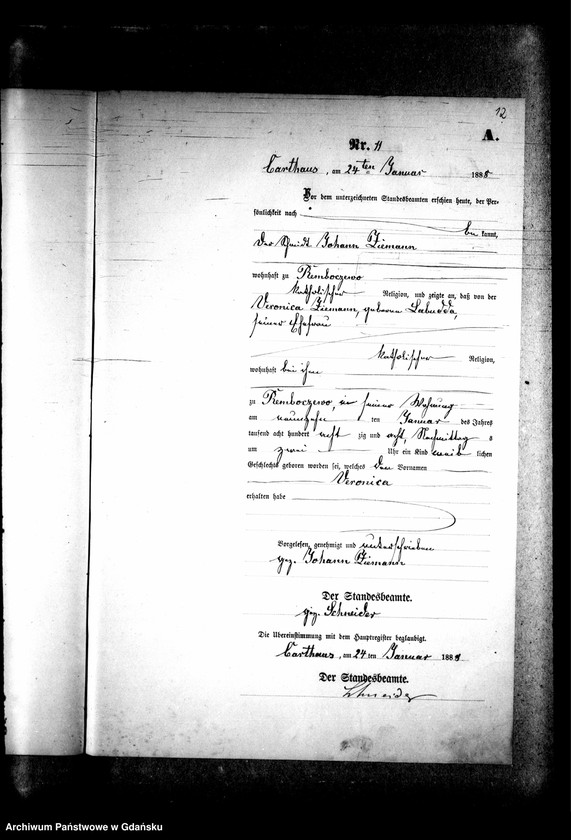 12
A.
Nr. 11
Carthaus, am 24ten Januar 1888
Vor dem unterzeichneten Standesbeamten erschien heute, der Per-
sönlichkeit nach
be kannt,
der Johann Ziemann
wohnhaft zu Remboczewo
katholischer Religion, und zeigte an, daß von der
Veronica Ziemann, geborene Labudda,
seiner Ehefrau
katholischer Religion,
wohnhaft bei ihm
zu Remboczewo, in seiner Wohnung
am neunzehn ten Januar des Jahres
tausend acht hundert acht zig und acht, Nachmittag s
um zwei Uhr ein Kind weib lichen
Geschlechts geboren worden sei, welches den Vornamen
Veronica
erhalten habe
Vorgelesen, genehmigt und unterschrieben
gez. Johann Ziemann
Der Standesbeamte.
gez. Schneider
Die Übereinstimmung mit dem Hauptregister beglaubigt.
Carthaus, am 24 ten Januar 1888
Der Standesbeamte.
Schneider
Archiwum Państwowe w Gdańsku